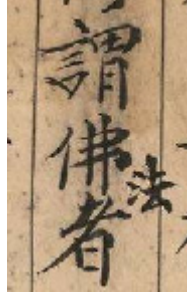 謂佛法者